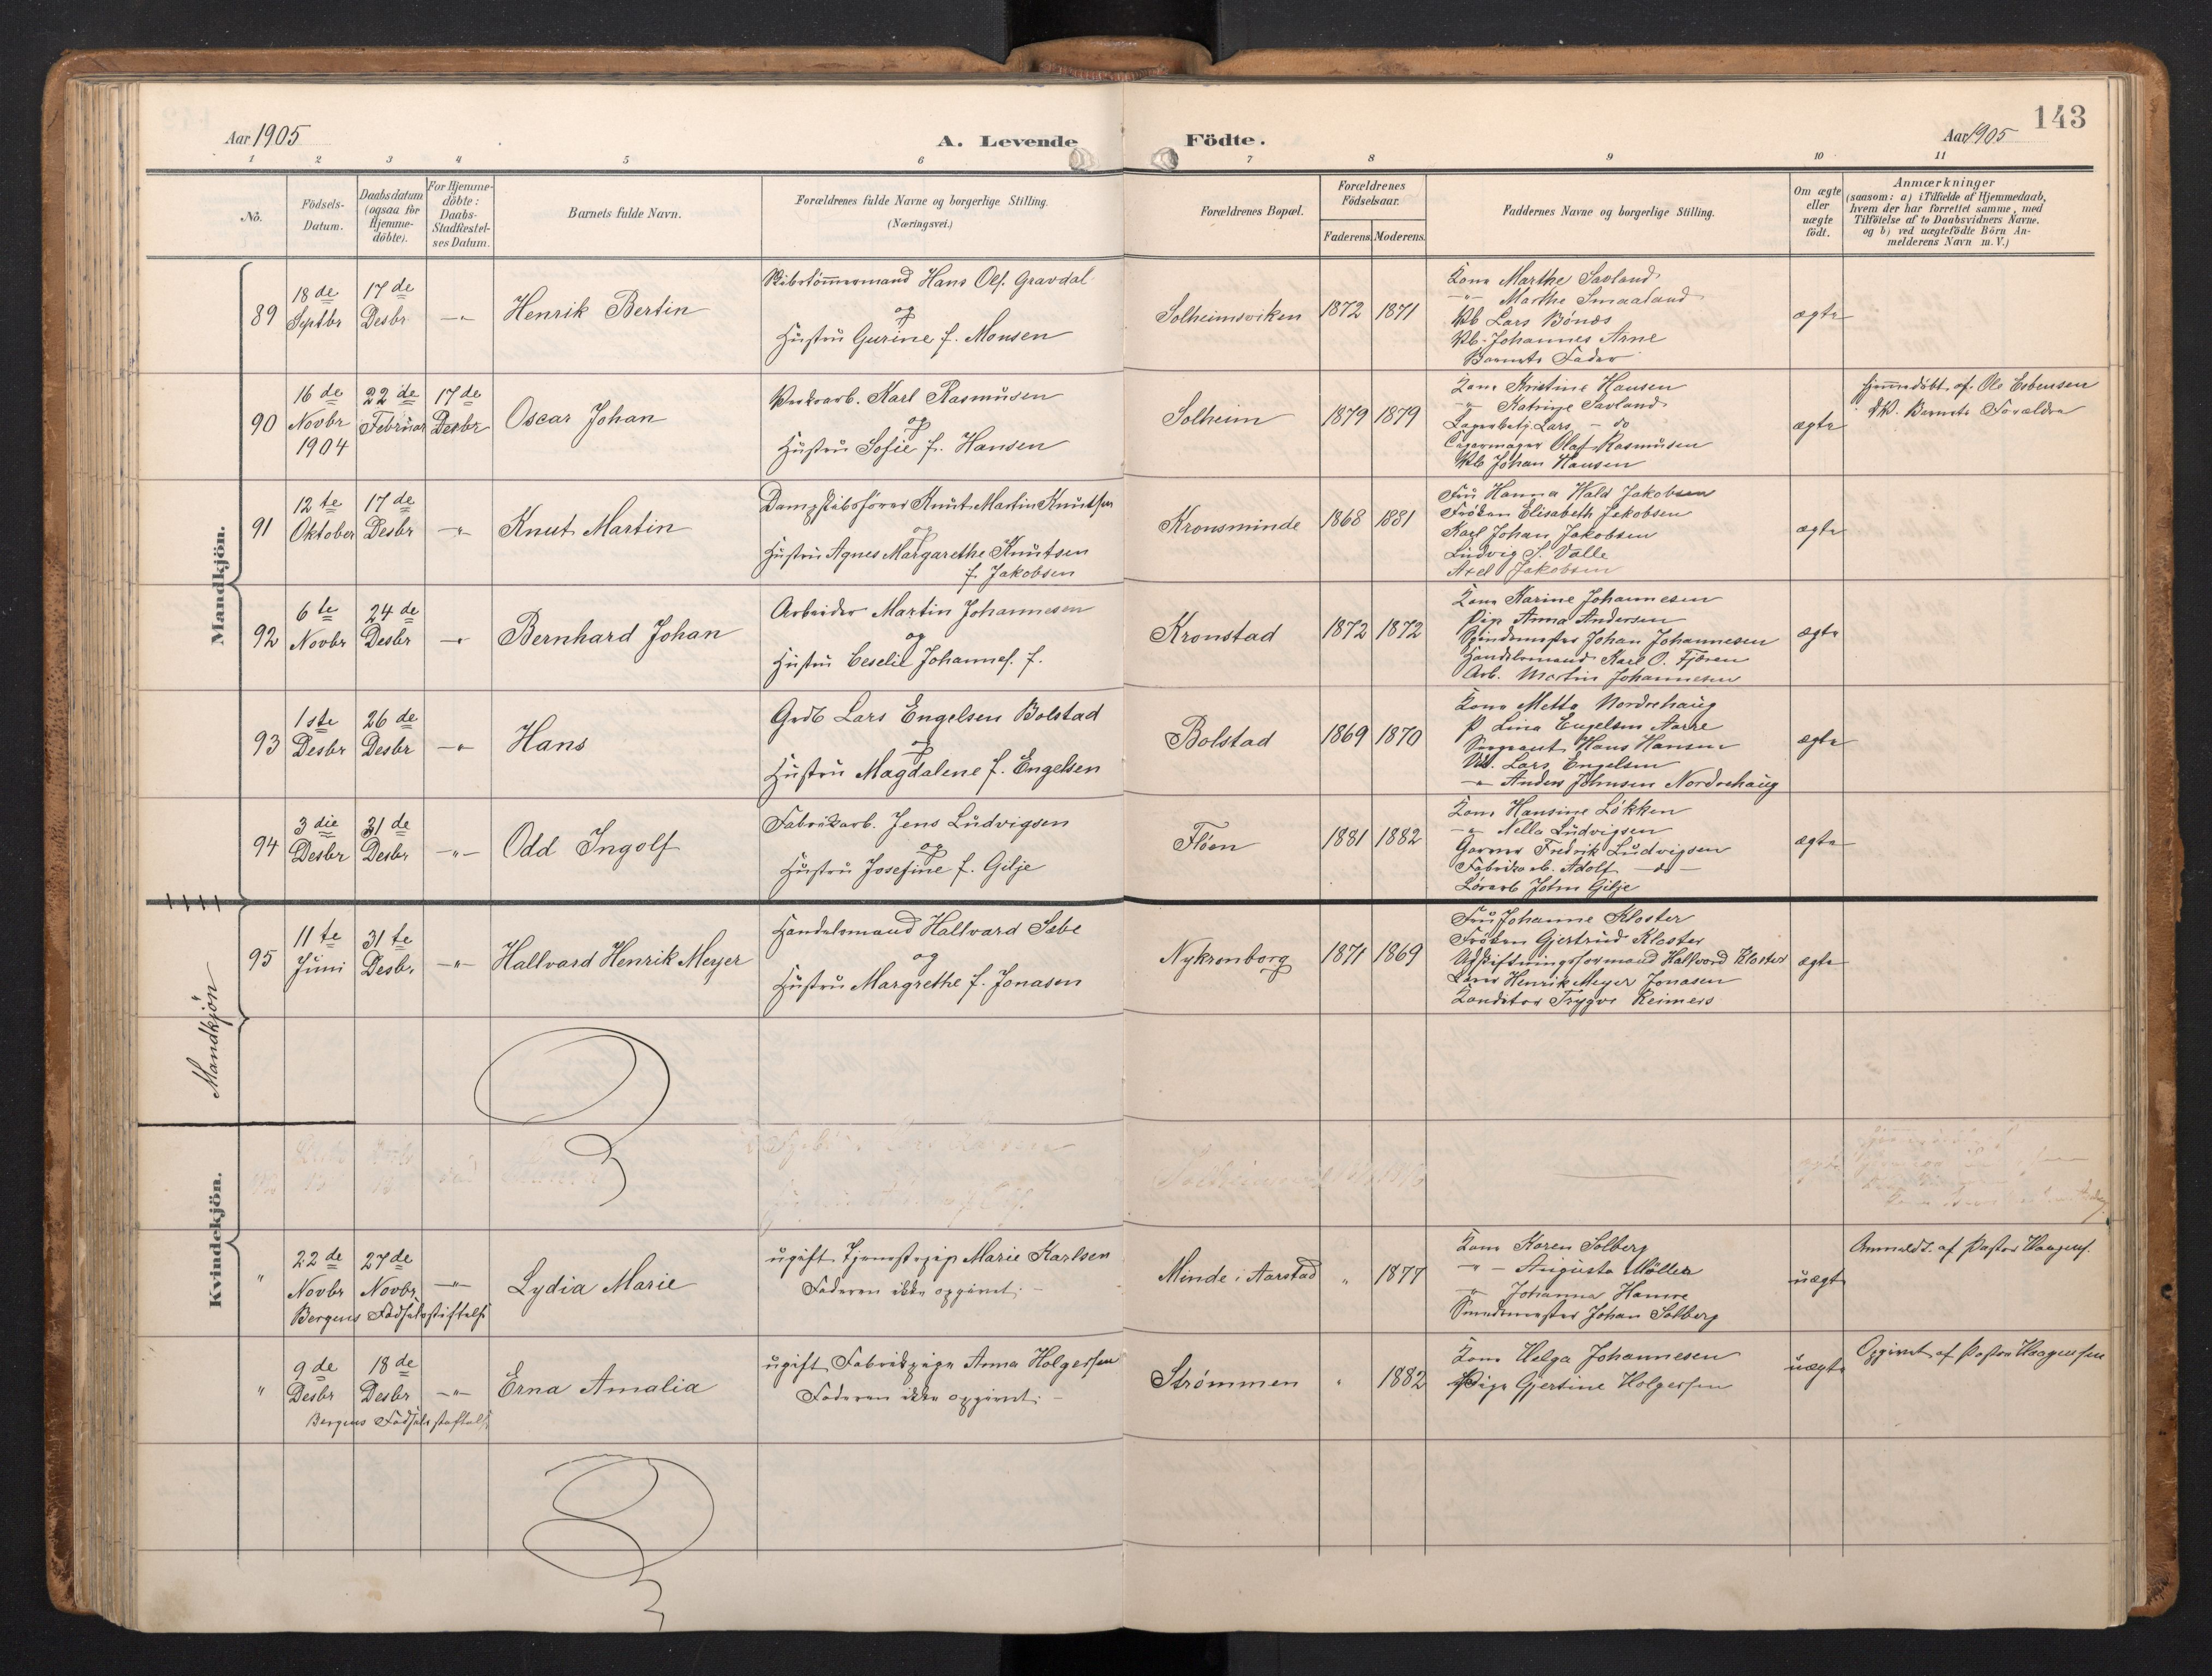 143
Aar 1905
A. Levende Födte.
Aar 1905
1 2 3 4 5 6 7 8 9 10 11
No.
Födsels-Datum.
Daabsdatum (ogsaa for Hjemme-döbte).
For Hjemme-döbte: Daabs-Stadfæstel-ses Datum.
Barnets fulde Navn.
Forældrenes fulde Navne og borgerlige Stilling.
(Næringsvei.)
Forældrenes Bopæl.
Forældrenes Födselsaar.
Faderens. Moderens.
Faddernes Navne og borgerlige Stilling.
Om ægte eller uægte födt.
Anmærkninger
(saasom: a) i Tilfælde af Hjemmedaab,
hvem der har forrettet samme, med
Tilföielse af to Daabsvidners Navne.
og b) ved uægtefödte Börn An-
melderens Navn m. V.)
Mandkjön.
89
18 de Septbr
17 de Desbr
-"-
Henrik Bertin
Skibstömmermand Hans Ols. Gravdal
og
Hustru Gurine f. Monsen
Solheimsviken
1872 1871
Kone Marthe Savland
-"- Marthe Smaaland
Vb Lars Bönæs
Vb. Johannes Arne
Barnets Fader
ægte
90
16 de Novbr 1904
22 de Februar
17 de Desbr
Oscar Johan
Verksarb. Karl Rasmusen
og
Hustru Sofie f. Hansen
Solheim
1879 1879
Kone Kristine Hansen
-"- Katrine Savland
Lagerbetj. Lars - do
Cigarmager Olaf Rasmusen
Vb Johan Hansen
ægte
Hjemmedöbt af Ole Esbensen
DV. Barnets Forældre
91
12 te Oktober
17 de Desbr
-"-
Knut Martin
Dampskibsförer Knut Martin Knutsen
og
Hustru Agnes Margarethe Knutsen
f. Jakobsen
Kronsminde
1868 1881
Fru Hanna Wald Jakobsen
Fröken Elisabeth Jakobsen
Karl Johan Jakobsen
Ludvig S. Valle
Axel Jakobsen
ægte
92
6 te Novbr
24 de Desbr
-"-
Bernhard Johan
Arbeider Martin Johannesen
og
Hustru Ceselie Johannes. f.
Kronstad
1872 1872
Kone Karine Johannesen
Pige Anna Andersen
Spindemester Johan Johannesen
Handelsmand Karl O. Fjæren
Arb. Martin Johannesen
ægte
93
1 ste Desbr
26 de Desbr
-"-
Hans
Grdb Lars Engelsen Bolstad
og
Hustru Magdalene f. Engelsen
Bolstad
1869 1870
Kone Metta Nordrehaug
P. Lina Engelsen Aarre
Sergeant Hans Hansen
Lars Engelsen
-"- Anders Johnsen Nordrehaug
ægte
94
3 die Desbr
31 de Desbr
-"-
Odd Ingolf
Fabrikarb. Jens Ludvigsen
og
Hustru Josefine f. Gilje
Flöen
1881 1882
Kone Hansine Lökken
-"- Nella Ludvigsen
Garver Fredrik Ludvigsen
Fabrikarb. Adolf - do -
Lörarb John Gilje
ægte
Mandkjön
95
11 te Juni
31 te Desbr.
-"-
Hallvard Henrik Meyer
Handelsmand Hallvard Sæbe
og
Hustru Margrethe f. Jonasen
Nykronborg
1871 1869
Fru Johanne Kloster
Fröken Gjertrud Kloster
Udskiftningsformand Hallvard Kloster
Henrik Meyer Jonasen
Konditor Trygve Reimers
ægte
Kvindekjön.
"
22 de Novbr
27 de Novbr
-"-
Bergens Födselsstiftelse
Lydia Marie
ugift Tjenestepige Marie Karlsen
Faderen ikke opgivet. -
Minde i Aarstad
" 1877
Kone Karen Solberg
-"- Augusta Möller
" Johanna Hamre
Smedemester Johan Solberg
uægte
Anmeldt af Pastor Haagens.
"
9 de Desbr
18 de Desbr
-"-
Bergens Födselsstiftelse
Erna Amalia
ugift Fabrikpige Anna Holgersen
Faderen ikke opgivet. -
Strömmen
" 1882
Kone Helga Johannesen
Pige Gjertine Holgersen
uægte
Opgivet af Pastor Haagensen